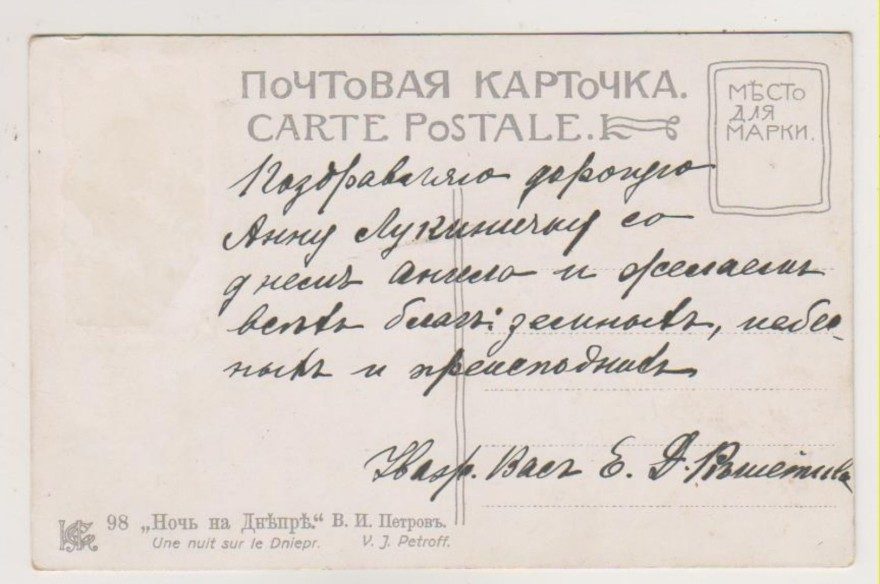 ПОЧТОВАЯ КАРТОЧКА.
CARTE POSTALE.
МѢСТО
ДЛЯ
МАРКИ.
Поздравляю дорогую
Анну Лукиничну со
днемъ ангела и желаемъ
всѣхъ благъ: земныхъ, небес-
ныхъ и преисподнихъ
Уваж. Васъ Е. Д.
98 „Ночь на Днѣпрѣ.“ В. И. Петровъ.
Une nuit sur le Dniepr. V. J. Petroff.